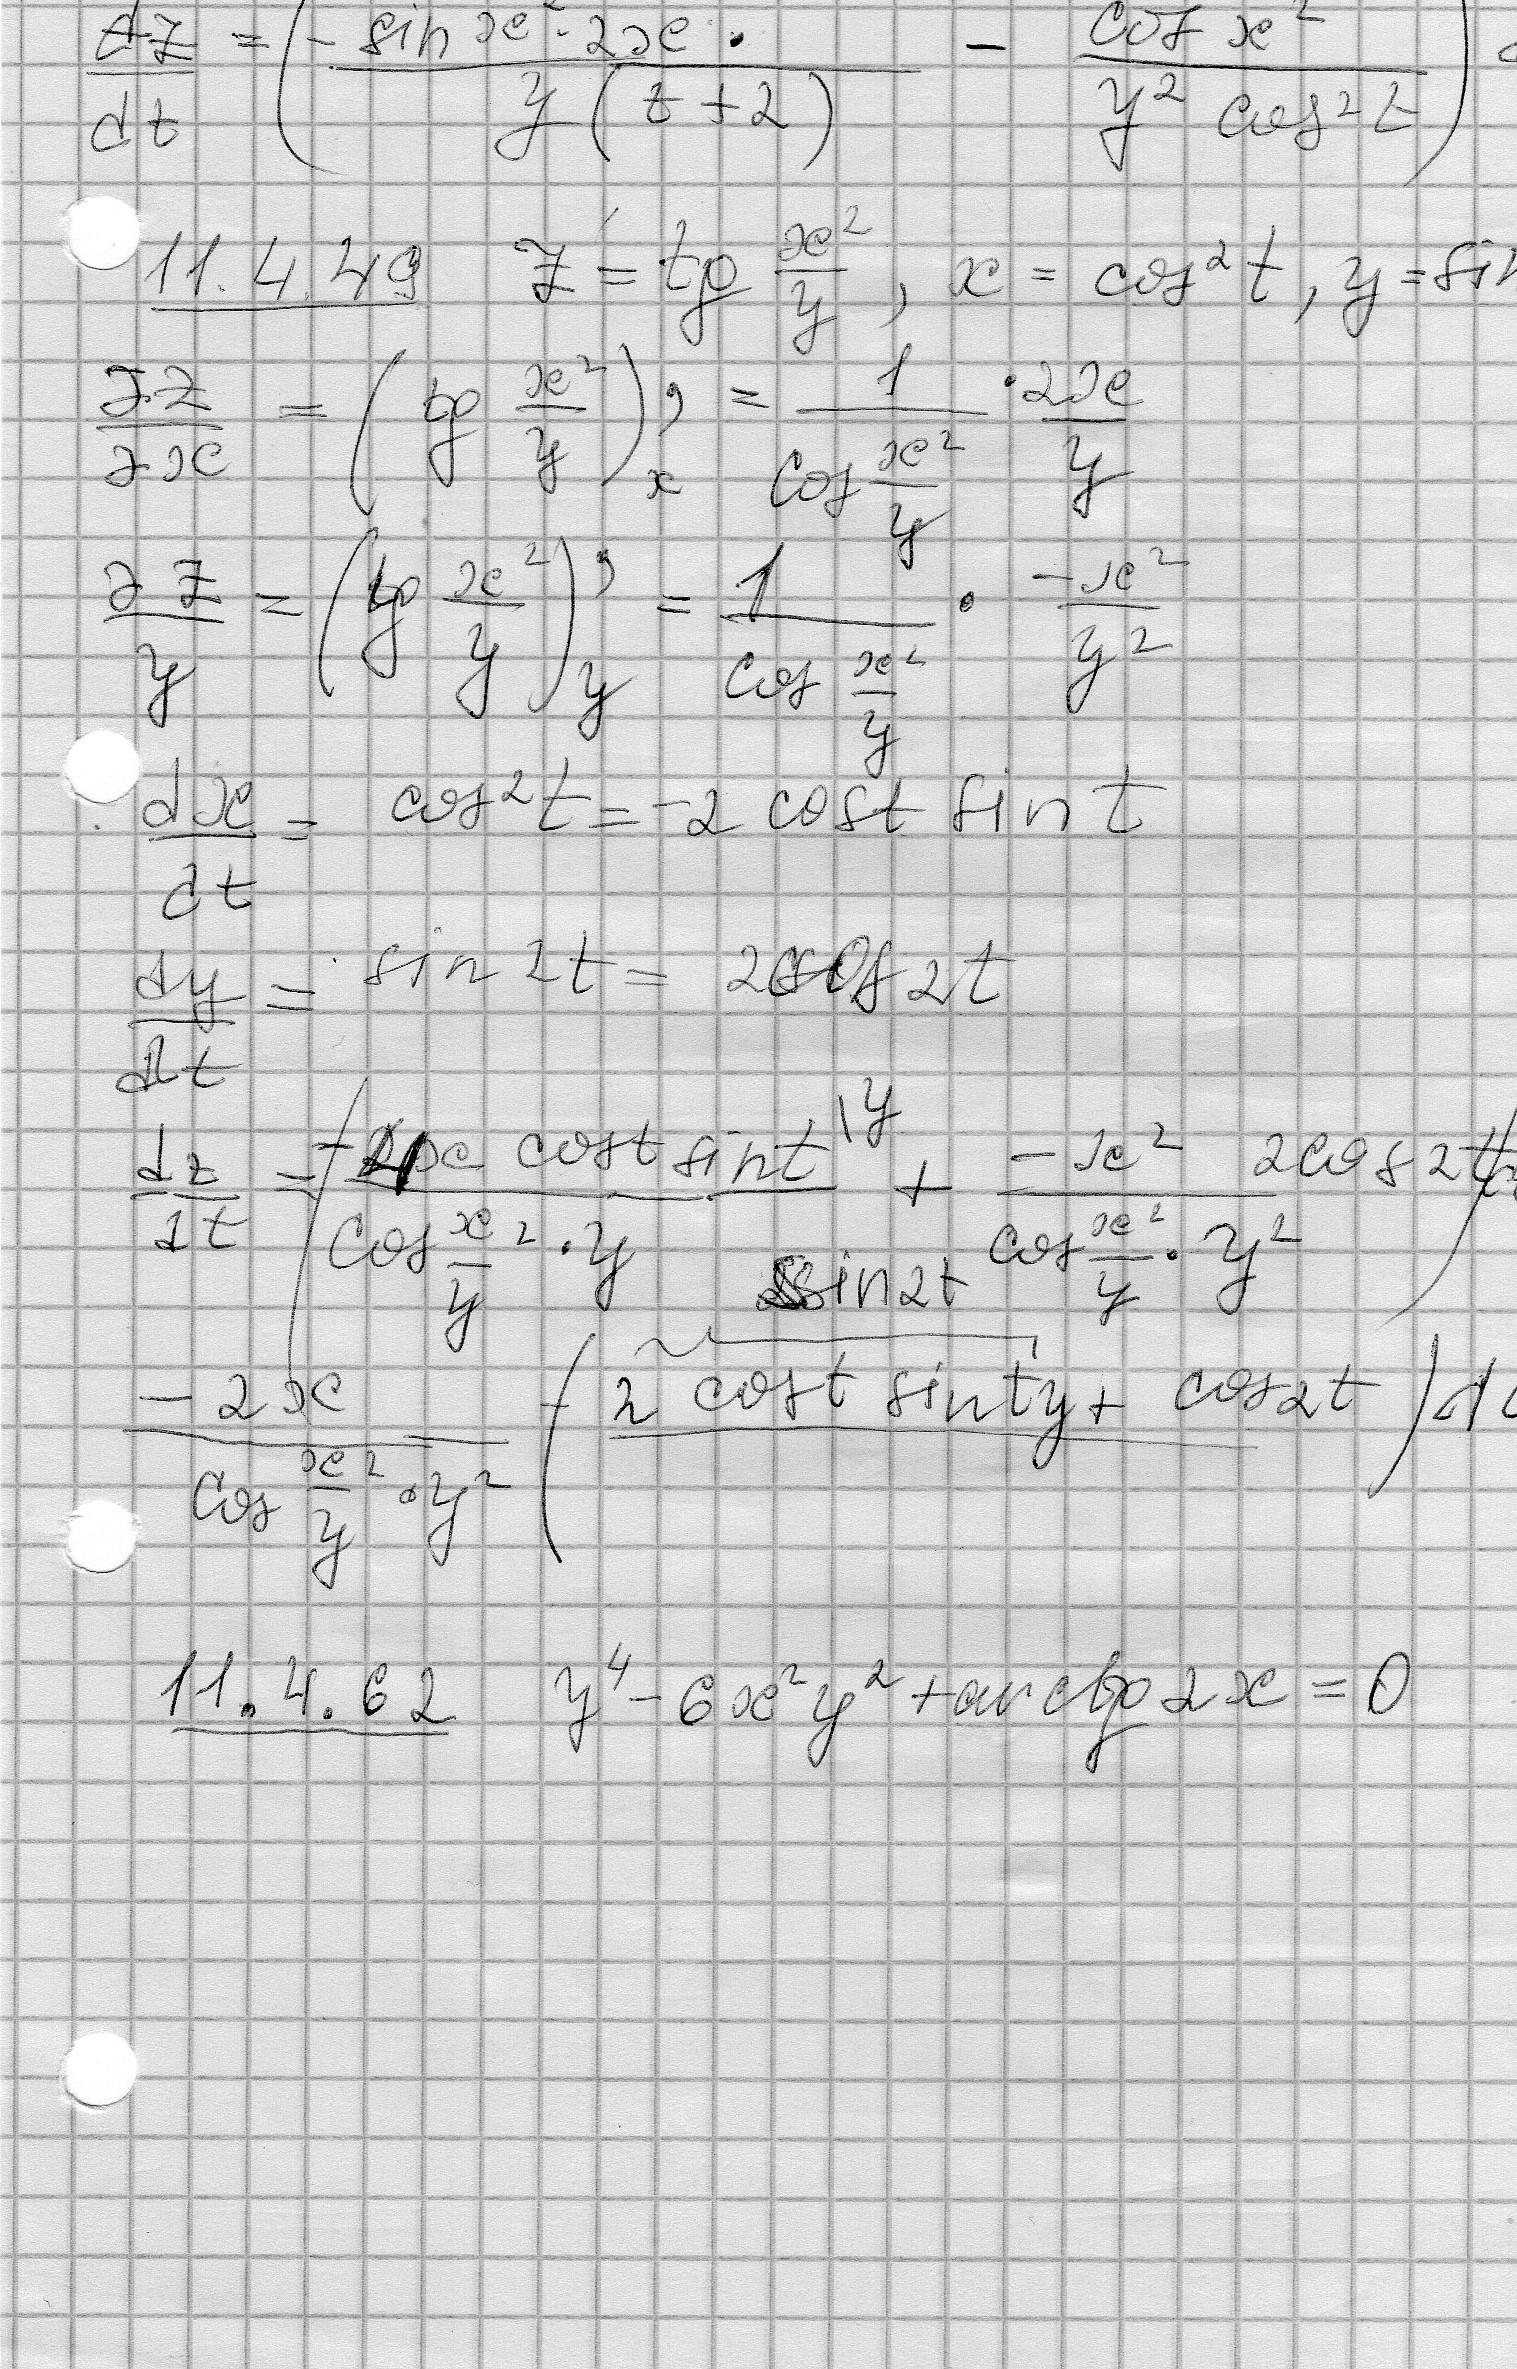 dz/dt = (- sin x² · 2x · / y(t+2) - cos x² / y² cos² t)
11.4.49 z = tg x²/y, x = cos² t, y = sin
∂z/∂x = (tg x²/y)'x = 1/cos x²/y · 2x/y
∂z/y = (tg x²/y)'y = 1/cos x²/y · -x²/y²
dx/dt = cos² t = -2 cost sin t
dy/dt = sin 2t = 2cos 2t
dz/dt = (-4x cost sint \y / cos x²/y · y + -x² 2cos 2t / cos x²/y · y²)
sin2t
-2x / cos x²/y · y² (2 cost sint y + cos2t) d
11.4.62 y⁴ - 6x²y² + arctg 2x = 0